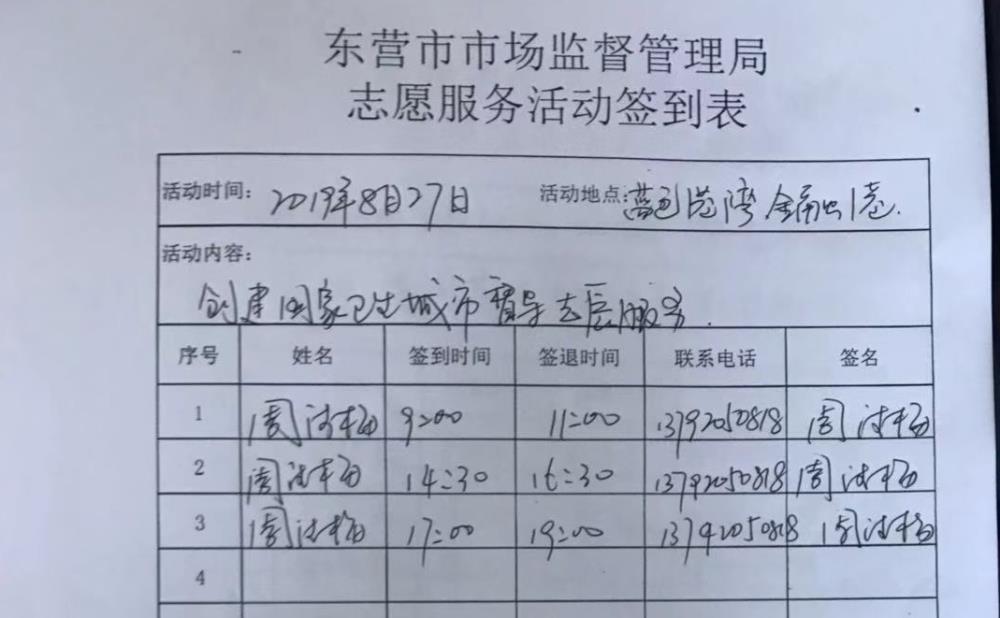 东营市市场监督管理局
志愿服务活动签到表
活动时间: 2019年8月27日 活动地点: 蓝色港湾金融港.
活动内容:
创建国家卫生城市督导志愿服务.
序号 姓名 签到时间 签退时间 联系电话 签名
1 周 9:00 11:00 13792050818 周
2 周 14:30 16:30 13792050818 周
3 周 17:00 19:00 13792050818 周
4